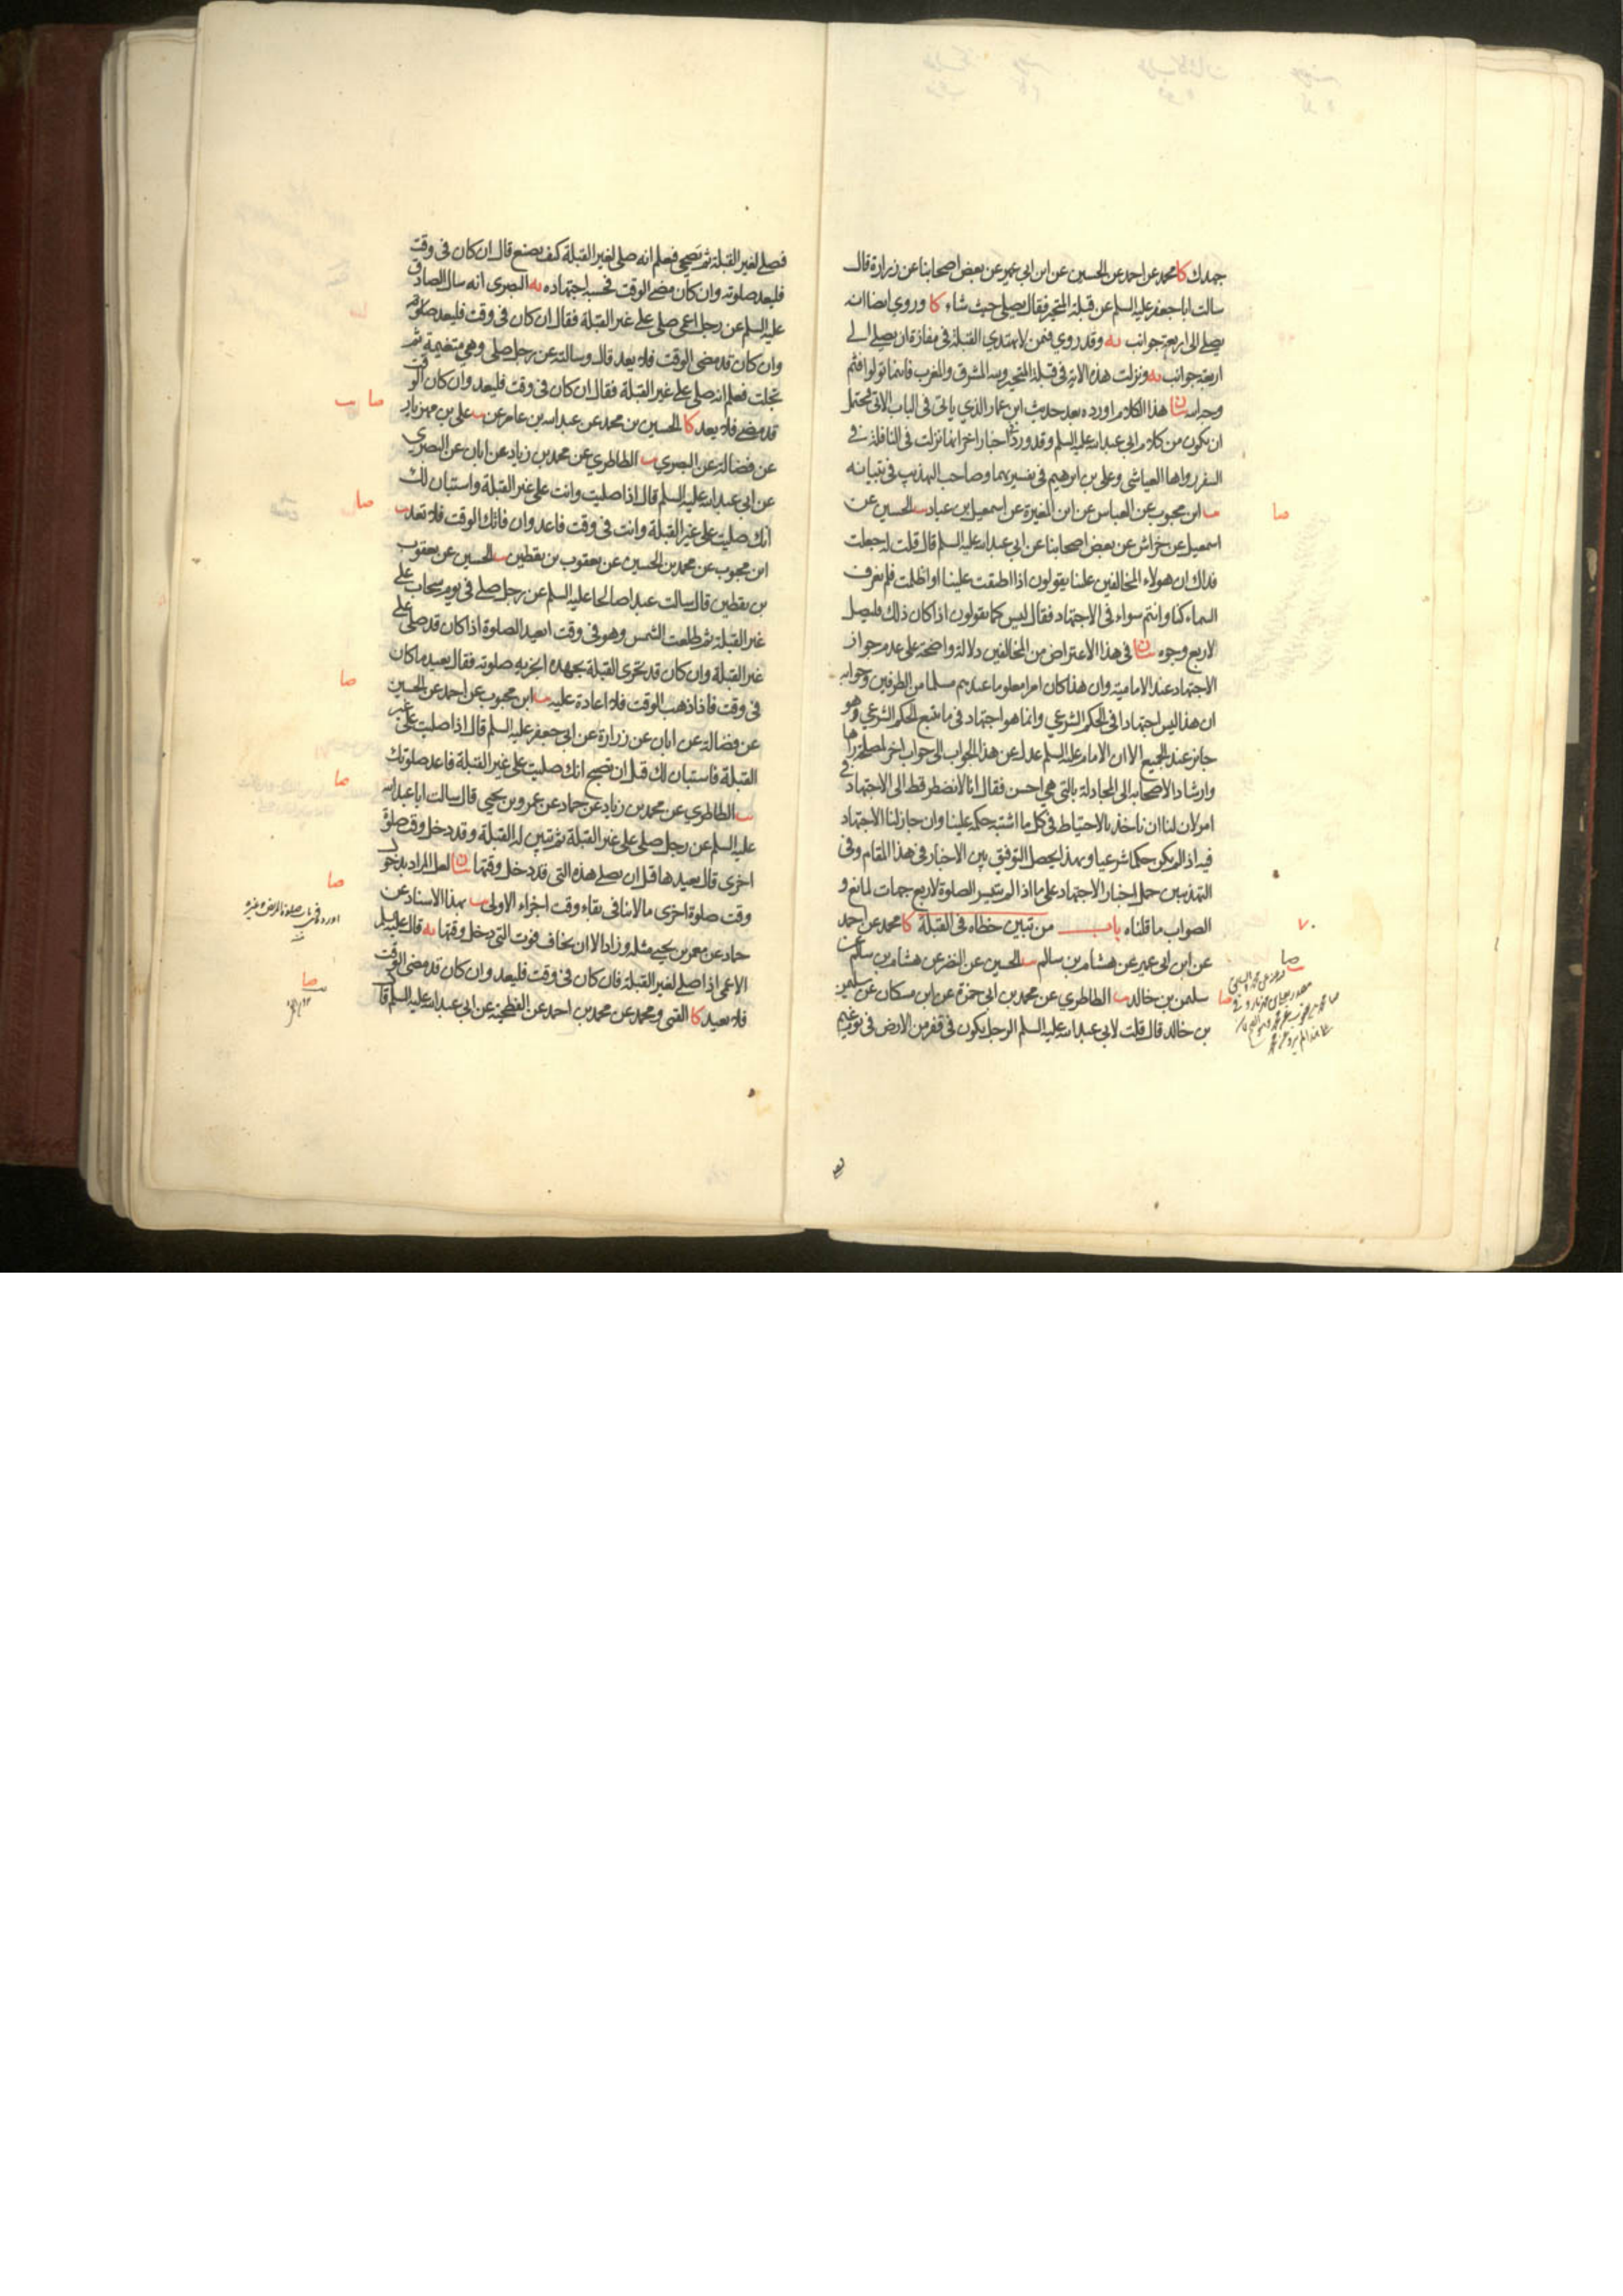 جهدك كا محمد عن احمد عن الحسين عن ابن ابي عمير عن بعض اصحابنا عن زرارة قال
سالت اباجعفر عليه السلم عن قبلة المتحير فقال يصلي حيث شاء كا وروي ايضا انه
يصلي الى اربعة جوانب يه وقد روي فيمن لا يهتدي القبلة في مفازة ان يصلي الى
اربعة جوانب يه ونزلت هذه الاية في قبلة المتحير ولله المشرق والمغرب فاينما تولوا فثم
وجه الله بيان هذا الكلام اورده بعد حديث ابن عمار الذي ياتي في الباب الاتي يحتمل
ان يكون من كلام ابي عبد الله عليه السلم وقد ورد اخبار اخر انها نزلت في النافلة في
السفر رواها العياشي وعلي بن ابرهيم في تفسيريهما وصاحب التهذيب في تبيانه
يب ابن محبوب عن العباس عن ابن المغيرة عن اسمعيل بن عباد يب الحسين عن
اسمعيل عن خراش عن بعض اصحابنا عن ابي عبد الله عليه السلم قال قلت له جعلت
فداك ان هولاء المخالفين علينا يقولون اذا اطبقت علينا او اظلمت فلم نعرف
السماء كنا وانتم سواء في الاجتهاد فقال ليس كما يقولون اذا كان ذلك فليصل
لاربع وجوه بيان في هذا الاعتراض من المخالفين دلالة واضحة على عدم جواز
الاجتهاد عند الامامية وان هذا كان امرا معلوما عندهم مسلما من الطرفين وجوابه
ان هذا ليس اجتهادا في الحكم الشرعي وانما هو اجتهاد في ما يتبع الحكم الشرعي وهو
جايز عند الجميع الا ان الامام عليه السلم عدل عن هذا الجواب الى جواب اخر لمصلحة راها
وارشاد الاصحابه الى المجادلة بالتي هي احسن فقال انا لا نضطر قط الى الاجتهاد في
امر لان لنا ان ناخذ بالاحتياط في كل ما اشتبه حكمه علينا وان جاز لنا الاجتهاد
فيه اذا لم يكن حكما شرعيا وبهذا يحصل التوفيق بين الاخبار في هذا المقام وفي
التهذيبين حمل اخبار الاجتهاد على ما اذا لم يتيسر الصلوة لاربع جهات لمانع و
الصواب ما قلناه باب من تبين خطاه في القبلة كا محمد عن احمد
عن ابن ابي عمير عن هشام بن سالم يب الحسين عن النضر عن هشام بن سالم عن
سليمن بن خالد يب الطاطري عن محمد بن ابي حمزة عن ابن مسكان عن سليمن
بن خالد قال قلت لابي عبد الله عليه السلم الرجل يكون في قفر من الارض في يوم غيم
صا
٧٠
صا
صا
فصلى لغير القبلة ثم يضحي فيعلم انه صلى لغير القبلة كيف يصنع قال ان كان في وقت
فليعد صلوته وان كان مضى الوقت فحسبه اجتهاده يه البصري انه سال الصادق
عليه السلم عن رجل اعمى صلى على غير القبلة فقال ان كان في وقت فليعد صلوته
وان كان قد مضى الوقت فلا يعد قال وسالته عن رجل صلى وهي متغيمة ثم
تجلت فعلم انه صلى على غير القبلة فقال ان كان في وقت فليعد وان كان الوقت
قد مضى فلا يعد كا الحسين بن محمد عن عبد الله بن عامر عن يب علي بن مهزيار
عن فضالة عن البصري يب الطاطري عن محمد بن زياد عن ابان عن البصري
عن ابي عبد الله عليه السلم قال اذا صليت وانت على غير القبلة واستبان لك
انك صليت على غير القبلة وانت في وقت فاعد وان فاتك الوقت فلا تعد يب
ابن محبوب عن محمد بن الحسين عن يعقوب بن يقطين يب الحسين عن يعقوب
بن يقطين قال سالت عبدا صالحا عليه السلم عن رجل صلى في يوم سحاب على
غير القبلة ثم طلعت الشمس وهو في وقت ايعيد الصلوة اذا كان قد صلى على
غير القبلة وان كان قد تحرى القبلة بجهده اتجزيه صلوته فقال يعيد ما كان
في وقت فاذا ذهب الوقت فلا اعادة عليه يب ابن محبوب عن احمد عن الحسين
عن فضالة عن ابان عن زرارة عن ابي جعفر عليه السلم قال اذا صليت على غير
القبلة فاستبان لك قبل ان تصبح انك صليت على غير القبلة فاعد صلوتك
يب الطاطري عن محمد بن زياد عن حماد عن عمرو بن يحيى قال سالت ابا عبد الله
عليه السلم عن رجل صلى على غير القبلة ثم تبين له القبلة وقد دخل وقت صلوة
اخرى قال يعيدها قبل ان يصلي هذه التي قد دخل وقتها بيان لعل المراد بدخول
وقت صلوة اخرى ما لا ينافي بقاء وقت اجزاء الاولى يب بهذا الاسناد عن
حماد عن معمر بن يحيى مثله وزاد الا ان يخاف فوت التي دخل وقتها يه قال عليه السلم
الاعمى اذا صلى لغير القبلة فان كان في وقت فليعد وان كان قد مضى الوقت
فلا يعيد كا القمي ومحمد عن محمد بن احمد عن الفطحية عن ابي عبد الله عليه السلم قال
صا يب
صا
صا
صا
صا
صا